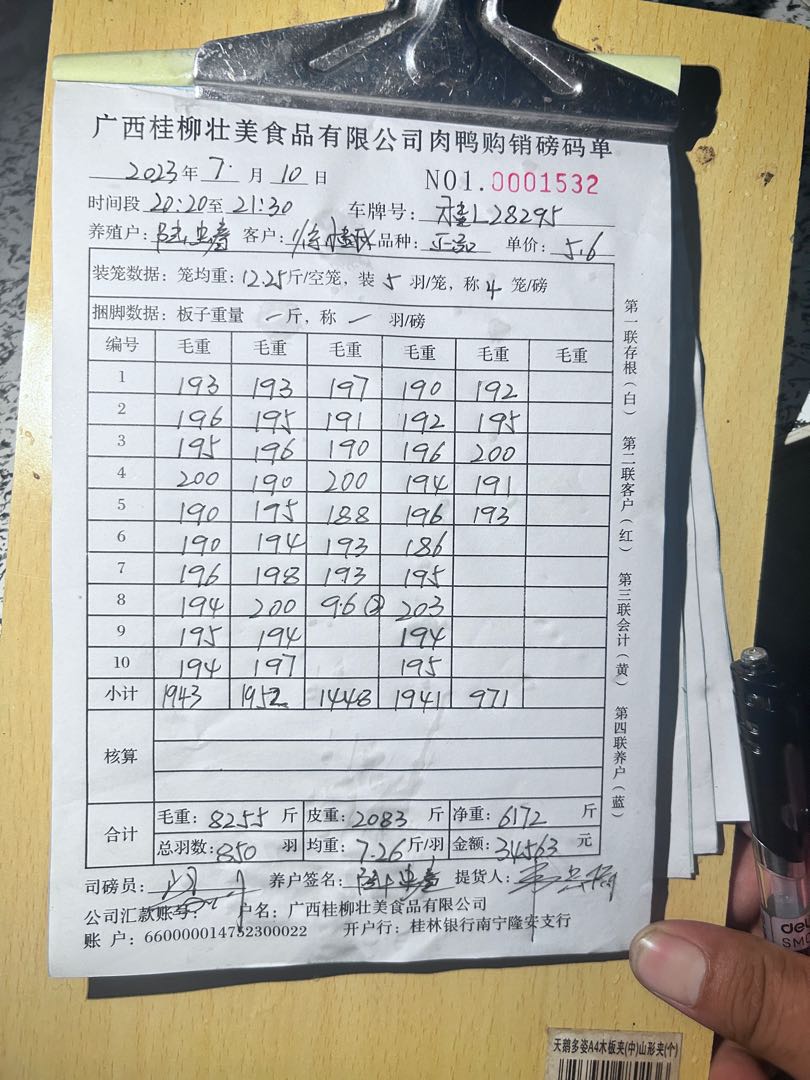 广西桂柳壮美食品有限公司肉鸭购销磅码单
2023年 7 月 10 日 NO1.0001532
时间段 20:20至 21:30 车牌号: 桂L28295
养殖户: 客户: 品种: 单价: 5.6
装笼数据: 笼均重: 12.25斤/空笼, 装 5 羽/笼, 称 4 笼/磅
捆脚数据: 板子重量 一 斤, 称 一 羽/磅
编号 毛重 毛重 毛重 毛重 毛重 毛重
1 193 193 197 190 192
2 196 195 191 192 195
3 195 196 190 196 200
4 200 190 200 194 191
5 190 195 188 196 193
6 190 194 193 186
7 196 198 193 195
8 194 200 96 ② 203
9 195 194 194
10 194 197 195
小计 1943 1952 1448 1941 971
核算
合计 毛重: 8255 斤 皮重: 2083 斤 净重: 6172 斤
总羽数: 850 羽 均重: 7.26斤/羽 金额: 34563 元
司磅员: 养户签名: 提货人:
公司汇款账号: 户名: 广西桂柳壮美食品有限公司
账 户: 660000014752300022 开户行: 桂林银行南宁隆安支行
第一联存根(白) 第二联客户(红) 第三联会计(黄) 第四联养户(蓝)
deli
天鹅多姿A4木板夹(中)山形夹(个)